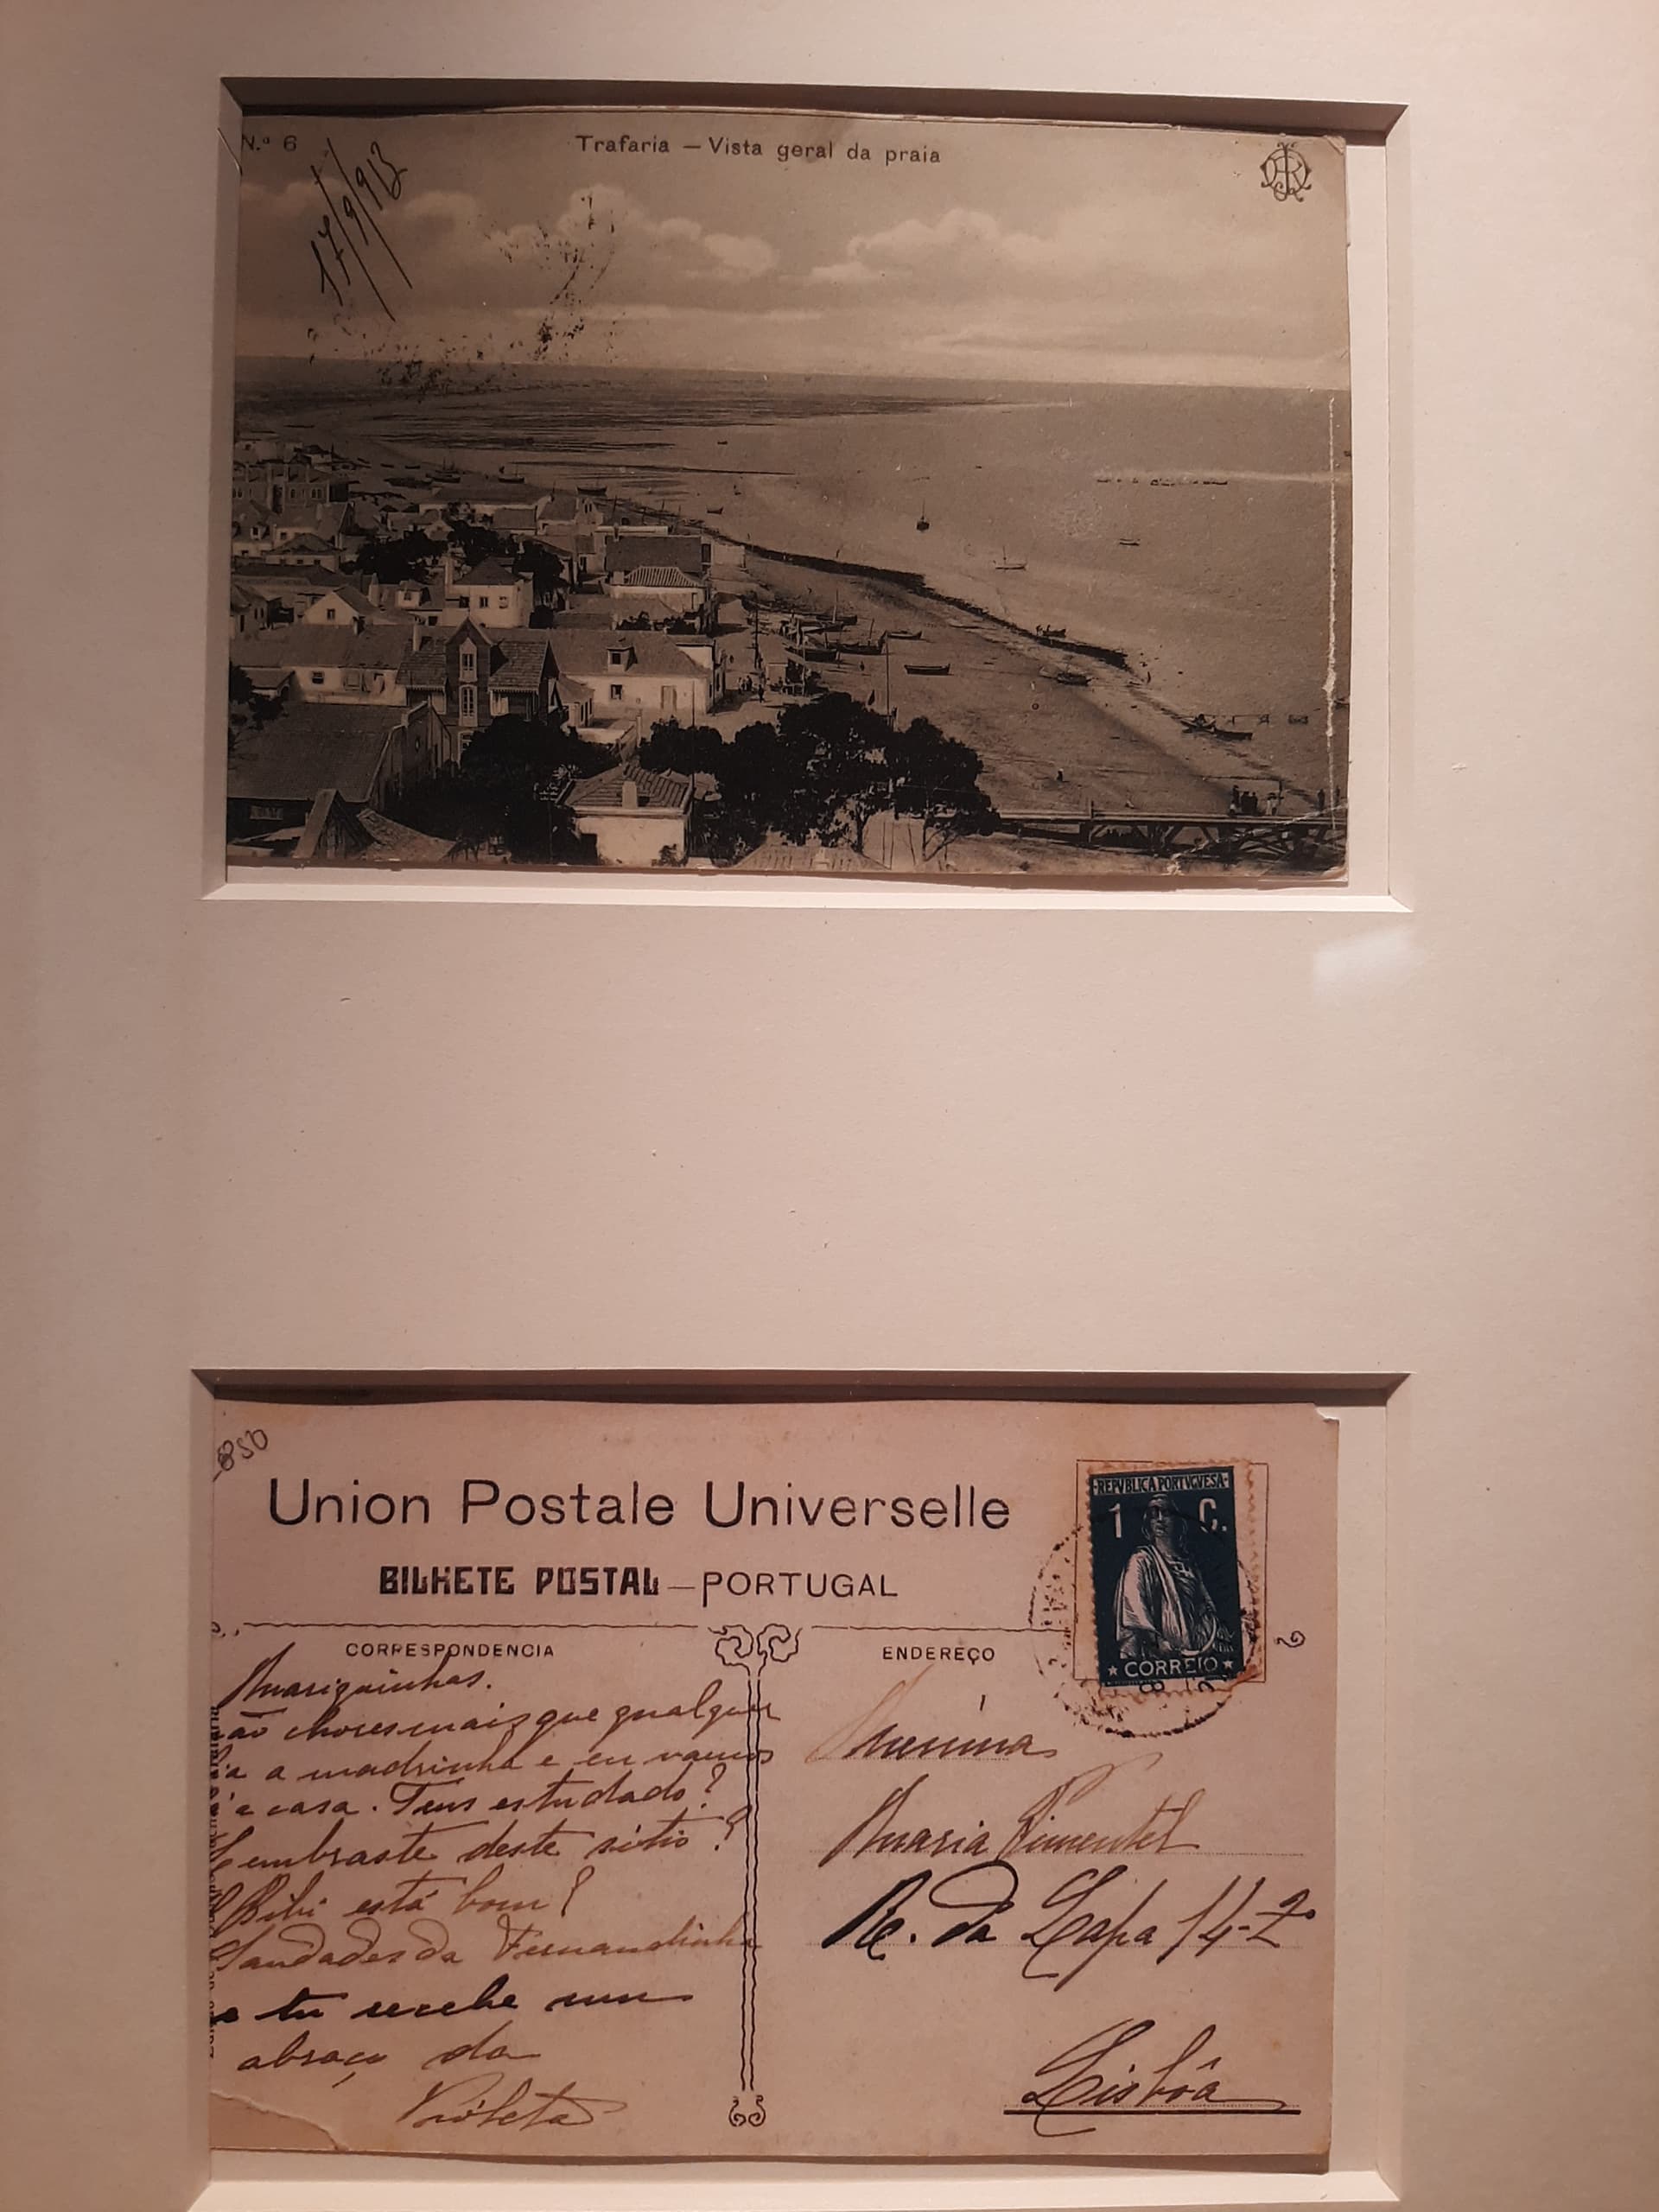 N.º 6
Trafaria — Vista geral da praia
17/9/913
850
Union Postale Universelle
BILHETE POSTAL — PORTUGAL
REPVBLICA PORTVGVESA
1 C.
CORREIO
CORRESPONDENCIA
Mariquinhas.
não chores mais que qualquer
dia a madrinha e eu vamos
a casa. Tens estudado?
Lembraste deste sitio?
Bibi está bom?
Saudades da Fernandinha
e tu recebe um
abraço da
Violeta
ENDEREÇO
Menina
Maria Pimentel
R. da Lapa 14-2º
Lisbôa